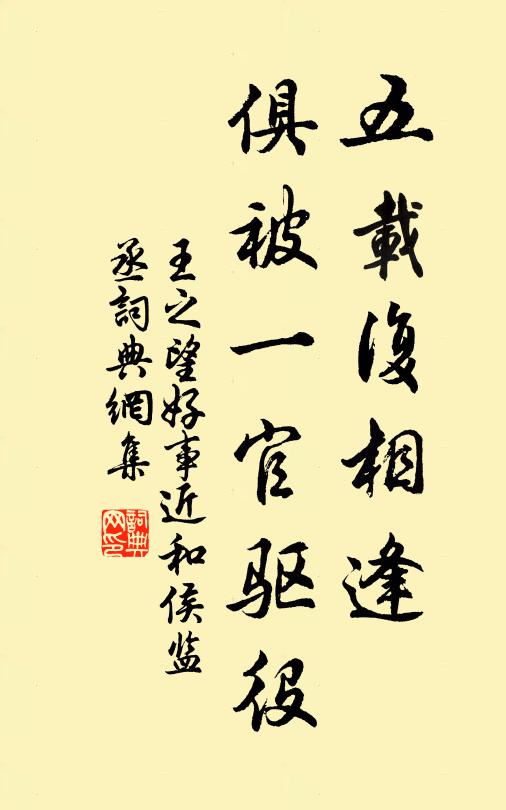 五載復相逢
俱被一官驱役
王之望好事近和侯监
丞詞典網集
詞典
网印